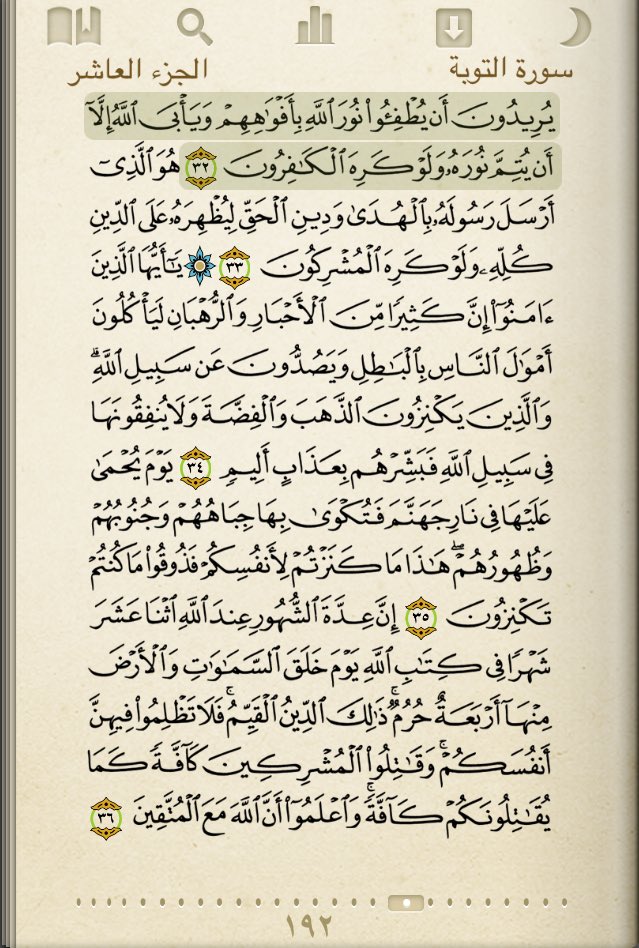 سورة التوبة
الجزء العاشر
يُرِيدُونَ أَن يُطْفِـُٔوا۟ نُورَ ٱللَّهِ بِأَفْوَٰهِهِمْ وَيَأْبَى ٱللَّهُ إِلَّآ
أَن يُتِمَّ نُورَهُۥ وَلَوْ كَرِهَ ٱلْكَٰفِرُونَ ٣٢ هُوَ ٱلَّذِىٓ
أَرْسَلَ رَسُولَهُۥ بِٱلْهُدَىٰ وَدِينِ ٱلْحَقِّ لِيُظْهِرَهُۥ عَلَى ٱلدِّينِ
كُلِّهِۦ وَلَوْ كَرِهَ ٱلْمُشْرِكُونَ ٣٣ يَٰٓأَيُّهَا ٱلَّذِينَ
ءَامَنُوٓا۟ إِنَّ كَثِيرًا مِّنَ ٱلْأَحْبَارِ وَٱلرُّهْبَانِ لَيَأْكُلُونَ
أَمْوَٰلَ ٱلنَّاسِ بِٱلْبَٰطِلِ وَيَصُدُّونَ عَن سَبِيلِ ٱللَّهِ ۗ
وَٱلَّذِينَ يَكْنِزُونَ ٱلذَّهَبَ وَٱلْفِضَّةَ وَلَا يُنفِقُونَهَا
فِى سَبِيلِ ٱللَّهِ فَبَشِّرْهُم بِعَذَابٍ أَلِيمٍ ٣٤ يَوْمَ يُحْمَىٰ
عَلَيْهَا فِى نَارِ جَهَنَّمَ فَتُكْوَىٰ بِهَا جِبَاهُهُمْ وَجُنُوبُهُمْ
وَظُهُورُهُمْ ۖ هَٰذَا مَا كَنَزْتُمْ لِأَنفُسِكُمْ فَذُوقُوا۟ مَا كُنتُمْ
تَكْنِزُونَ ٣٥ إِنَّ عِدَّةَ ٱلشُّهُورِ عِندَ ٱللَّهِ ٱثْنَا عَشَرَ
شَهْرًا فِى كِتَٰبِ ٱللَّهِ يَوْمَ خَلَقَ ٱلسَّمَٰوَٰتِ وَٱلْأَرْضَ
مِنْهَآ أَرْبَعَةٌ حُرُمٌ ۚ ذَٰلِكَ ٱلدِّينُ ٱلْقَيِّمُ ۚ فَلَا تَظْلِمُوا۟ فِيهِنَّ
أَنفُسَكُمْ ۚ وَقَٰتِلُوا۟ ٱلْمُشْرِكِينَ كَآفَّةً كَمَا
يُقَٰتِلُونَكُمْ كَآفَّةً ۚ وَٱعْلَمُوٓا۟ أَنَّ ٱللَّهَ مَعَ ٱلْمُتَّقِينَ ٣٦
١٩٢